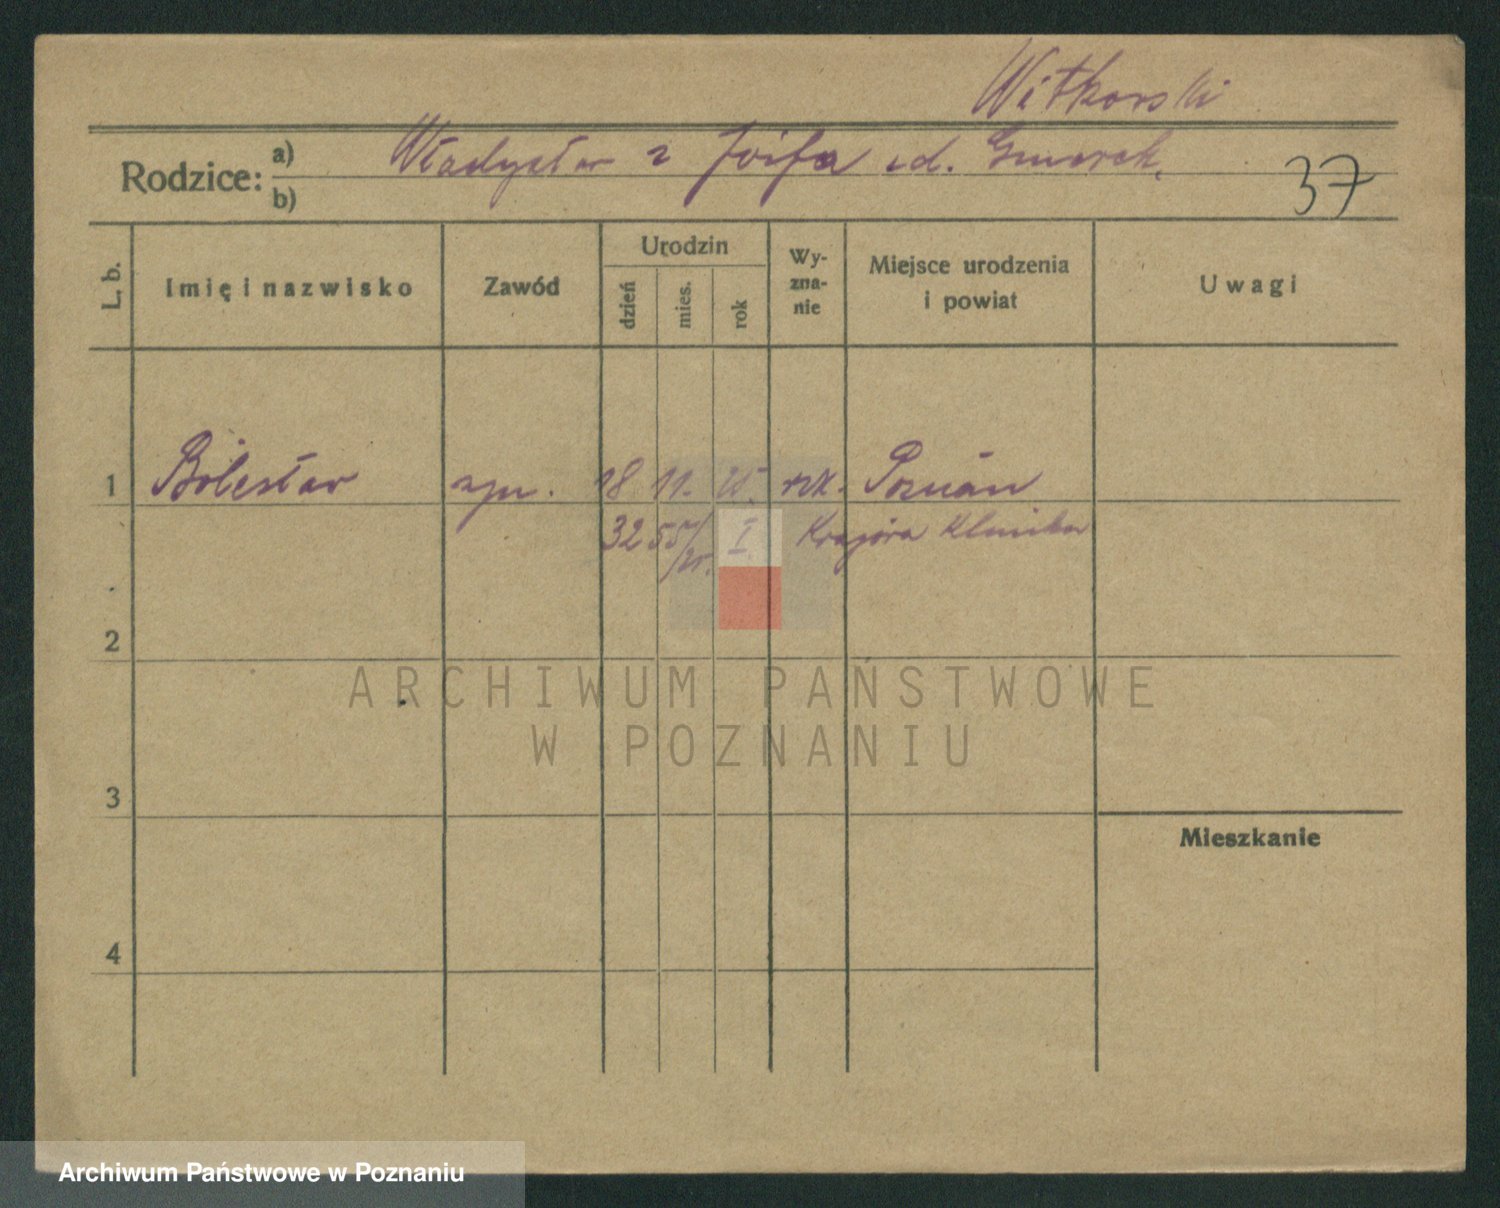 Witkowski
Rodzice: a) Władysław i Zofja zd.
b)
37
L. b.
Imię i nazwisko
Zawód
Urodzin
dzień
mies.
rok
Wy-
zna-
nie
Miejsce urodzenia
i powiat
Uwagi
1 Bolesław 18 11. 25. rzk. Poznań
32 I. Krajowa Klinika
2
ARCHIWUM PAŃSTWOWE
W POZNANIU
3
Mieszkanie
4
Archiwum Państwowe w Poznaniu